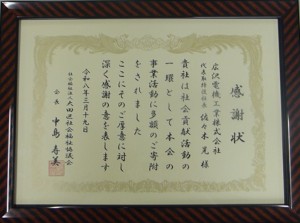 感謝状
広沢電機工業株式会社
代表取締役社長 佐々木 晃 様
貴社は社会貢献活動の
一環として本会の
事業活動に多額のご寄附
をされました
ここにそのご厚意に対し
深く感謝の意を表します
令和八年三月十九日
社会福祉法人大田区社会福祉協議会
会長 中島寿美